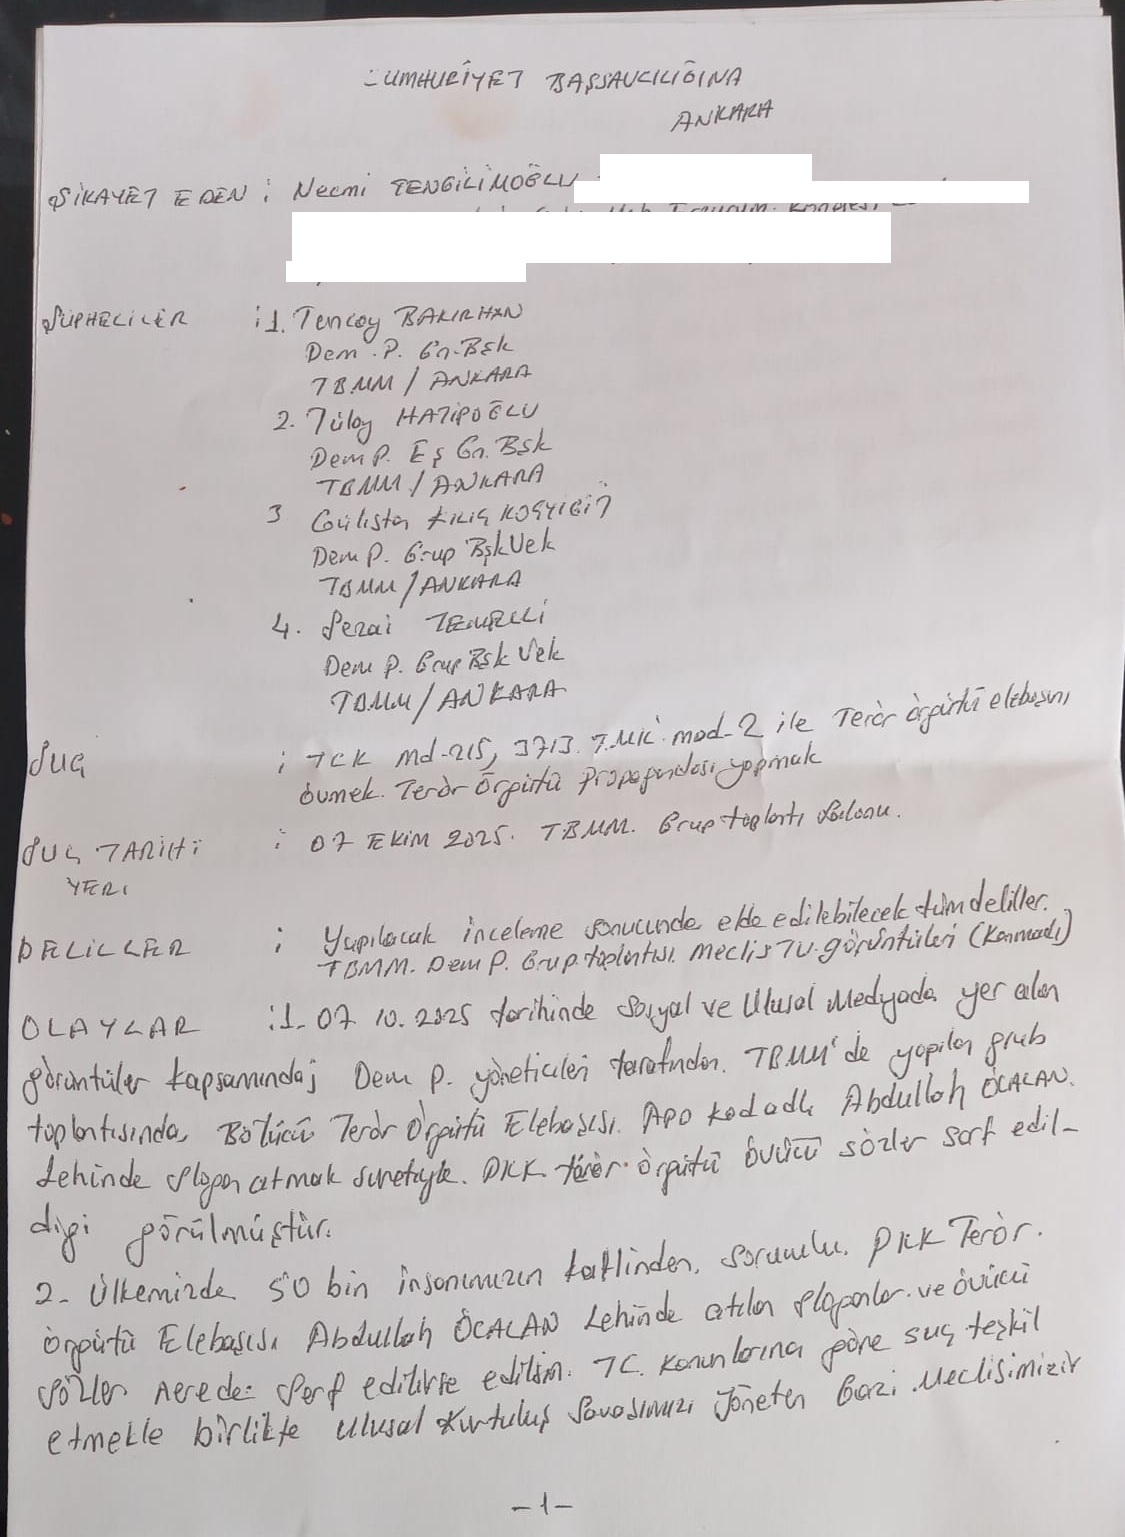 CUMHURİYET BAŞSAVCILIĞINA
ANKARA
ŞİKAYET EDEN : Necmi TENGİLİMOĞLU
ŞÜPHELİLER : 1. Tuncay BAKIRHAN
Dem. P. Gn. Bşk
TBMM / ANKARA
2. Tülay HATİPOĞLU
Dem P. Eş Gn. Bşk
TBMM / ANKARA
3 Gülistan KILIÇ KOÇYİĞİT
Dem P. Grup Bşk Vek
TBMM / ANKARA
4. Sezai TEMELLİ
Dem P. Grup Bşk Vek
TBMM / ANKARA
SUÇ : TCK md-215, 3713. T.M.K. mad-2 ile Terör örgütü elebaşını
övmek. Terör Örgütü Propagandası yapmak
SUÇ TARİHİ : 07 EKİM 2025. TBMM. Grup toplantı Salonu.
YERİ
DELİLLER : Yapılacak inceleme sonucunda elde edilebilecek tüm deliller.
TBMM. Dem P. Grup toplantısı. Meclis TV. görüntüleri
OLAYLAR : 1- 07 10.2025 tarihinde Sosyal ve Ulusal Medyada yer alan
görüntüler kapsamında; Dem P. yöneticileri tarafından. TBMM'de yapılan grub
toplantısında, Bölücü Terör Örgütü Elebaşısı. APO kod adlı Abdullah ÖCALAN.
Lehinde slogan atmak suretiyle. PKK terör örgütü övücü sözler sarf edil-
diği görülmüştür.
2- Ülkemizde 50 bin insanımızın katlinden, sorumlu. PKK Terör.
Örgütü Elebaşısı Abdullah ÖCALAN Lehinde atılan sloganlar. ve övücü
sözler nerede: Sarf edilirse edilsin. TC. Kanunlarına göre suç teşkil
etmekle birlikte Ulusal Kurtuluş Savaşımızı Yöneten Gazi Meclisimizin
-1-